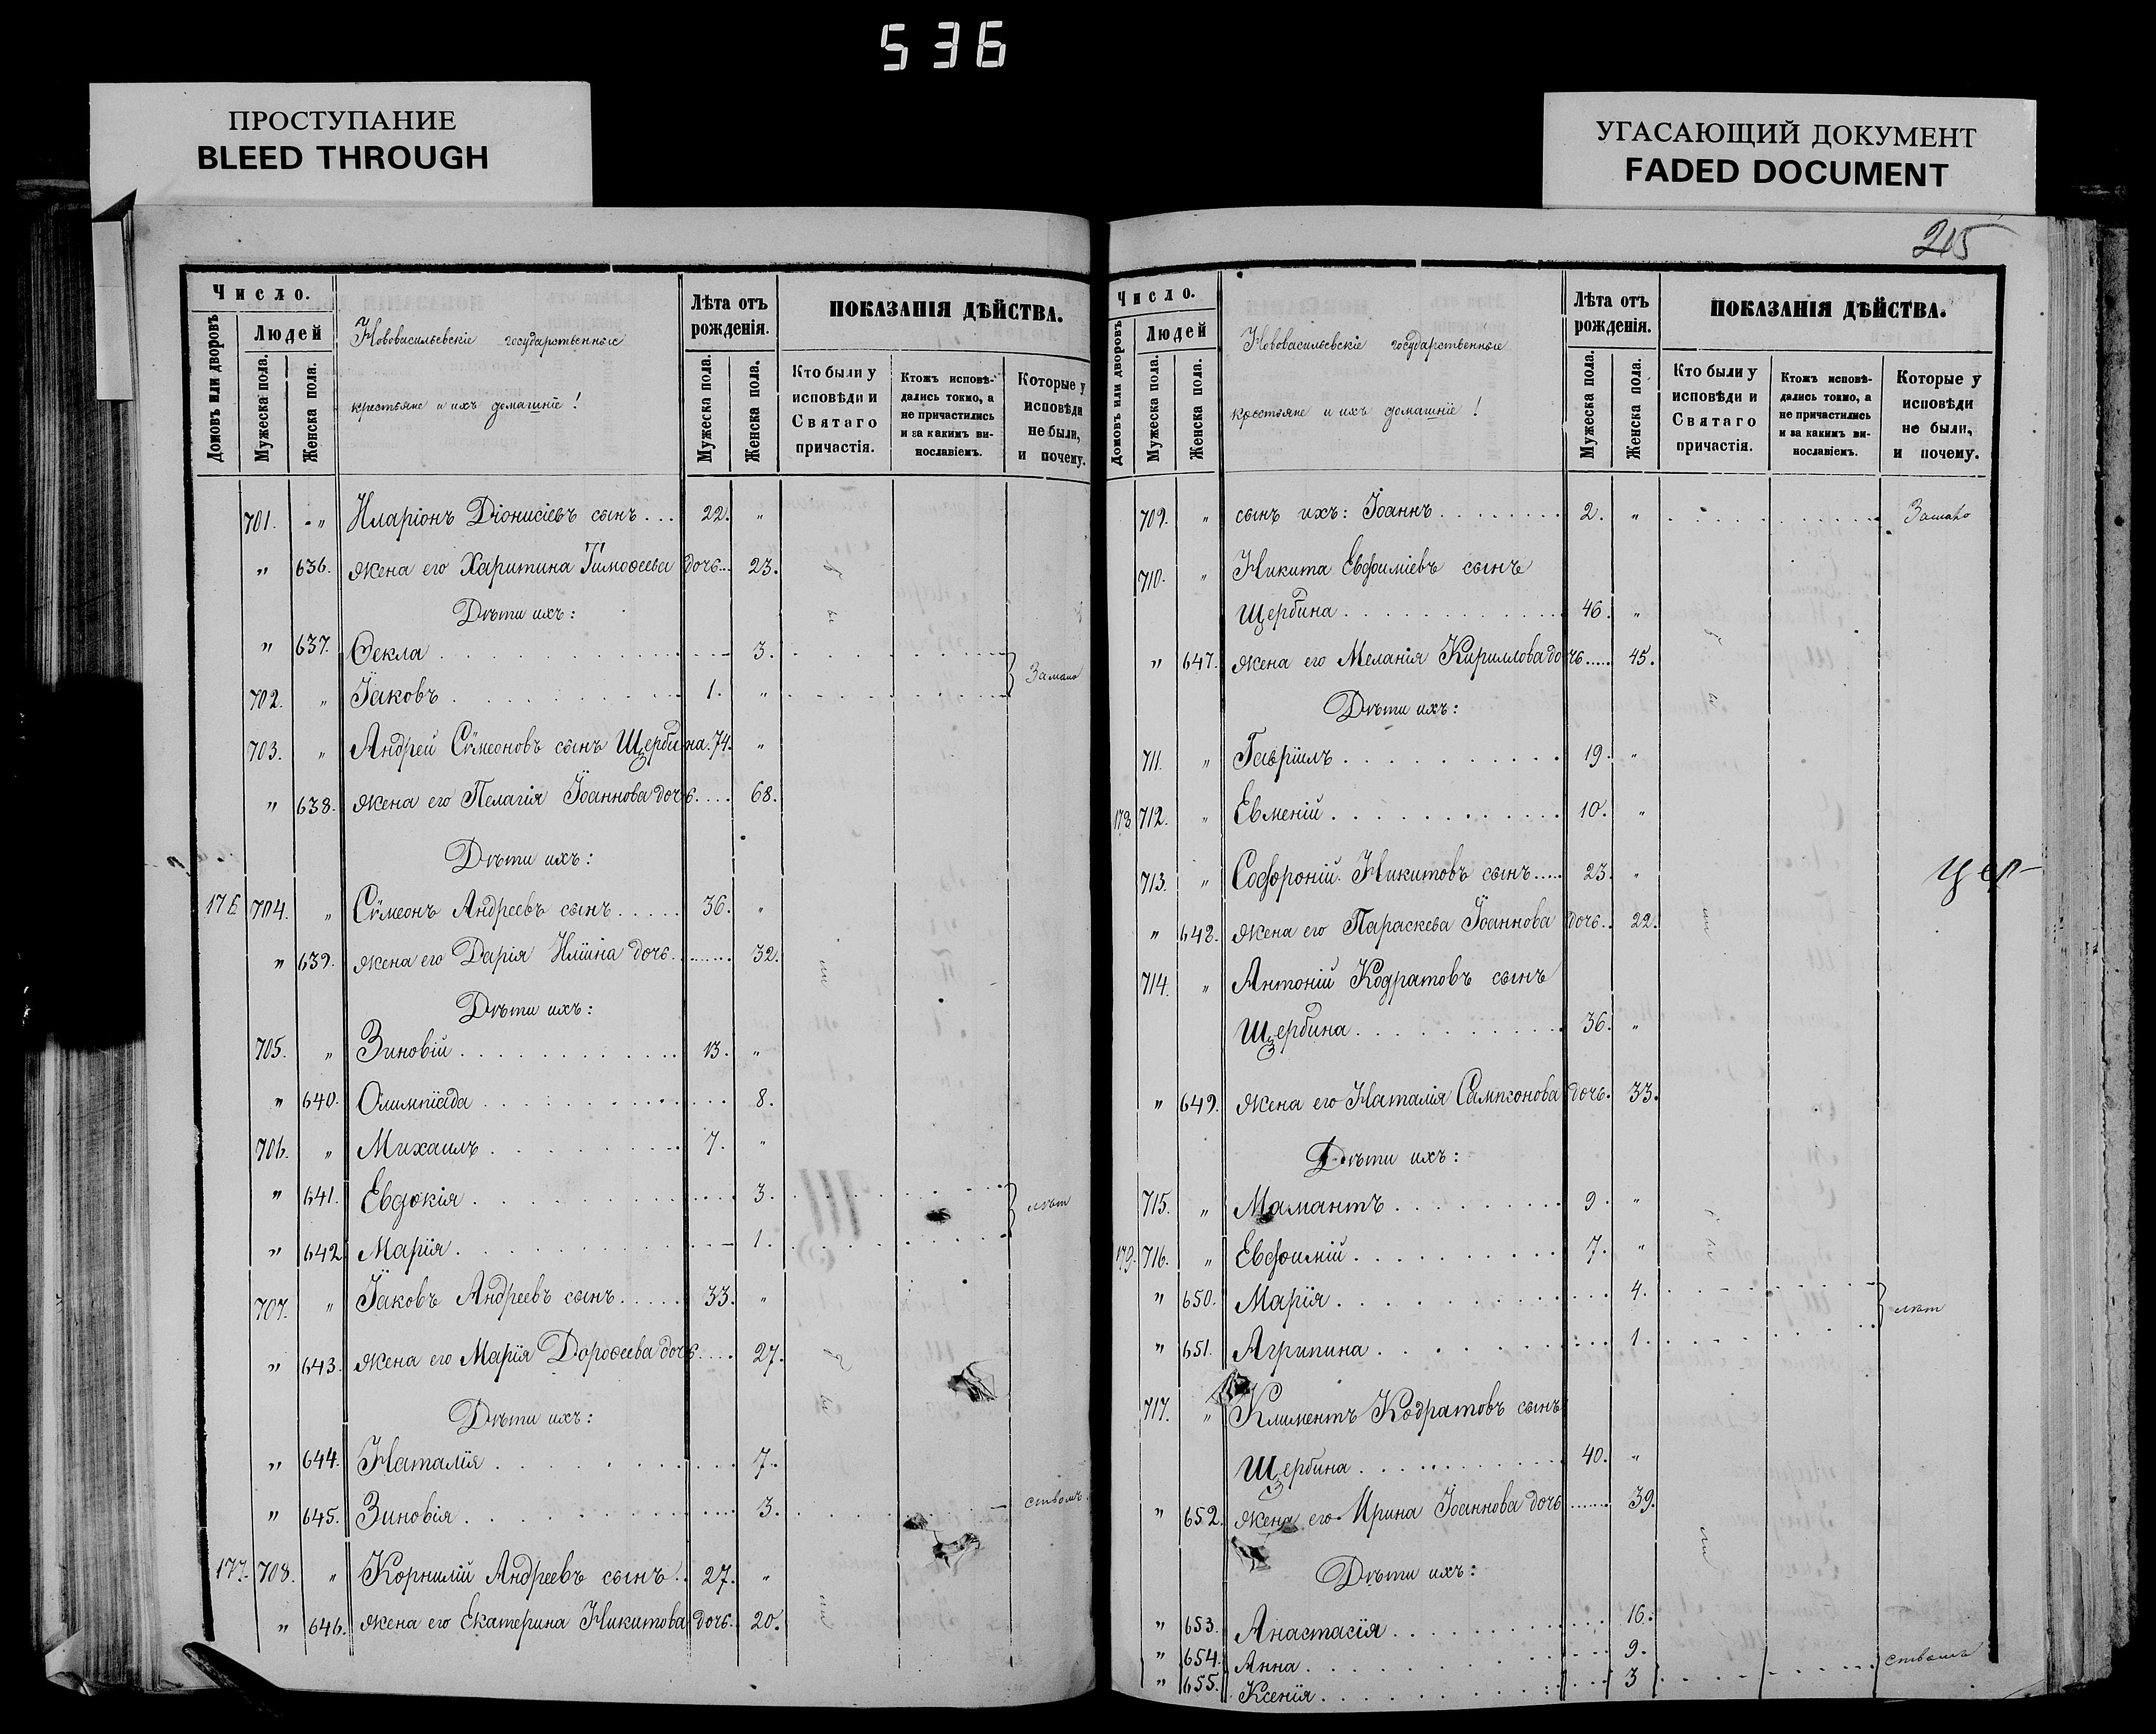 536
ПРОСТУПАНИЕ
BLEED THROUGH
УГАСАЮЩИЙ ДОКУМЕНТ
FADED DOCUMENT
Число.
Домовъ или дворовъ
Людей
Мужеска пола.
Женска пола.
Нововасильевскіе государственные
крестьяне и ихъ домашніе!
Лѣта отъ рожденія.
Мужеска пола.
Женска пола.
ПОКАЗАНІЯ ДѢЙСТВА.
Кто были у исповѣди и Святаго причастія.
Ктожъ исповѣ-дались токмо, а не причастились и за какимъ ви-нословіемъ.
Которые у исповѣди не были, и почему.
701. " Иларіонъ Діонисіевъ сынъ... 22. "
" 636. жена его Харитина Тимоѳеева дочь... 23.
Дѣти ихъ:
" 637. Ѳекла 3.
702. " Іаковъ 1. "
Замало
703. " Андрей Сѵмеоновъ сынъ Щербина. 74. "
" 638. жена его Пелагія Іоаннова дочь.... 68.
Дѣти ихъ:
176 704. " Сѵмеонъ Андреевъ сынъ..... 36. "
" 639. жена его Дарія Иліина дочь........ 32.
Дѣти ихъ:
705. " Зиновій 13. "
" 640. Олимпіада 8.
706. " Михаилъ 7. "
" 641. Евдокія 3.
лѣт
" 642. Марія 1.
707. " Іаковъ Андреевъ сынъ..... 33. "
" 643. жена его Марія Дороѳеева дочь.... 27.
Дѣти ихъ:
" 644. Наталія 7.
" 645. Зиновія 3. ствомъ.
177. 708. " Корнилій Андреевъ сынъ.. 27. "
" 646. жена его Екатерина Никитова дочь. 20.
215
Число.
Домовъ или дворовъ
Людей
Мужеска пола.
Женска пола.
Нововасильевскіе государственные
крестьяне и ихъ домашніе!
Лѣта отъ рожденія.
Мужеска пола.
Женска пола.
ПОКАЗАНІЯ ДѢЙСТВА.
Кто были у исповѣди и Святаго причастія.
Ктожъ исповѣ-дались токмо, а не причастились и за какимъ ви-нословіемъ.
Которые у исповѣди не были, и почему.
709. " сынъ ихъ: Іоаннъ 2. " Замало
710. " Никита Евфиміевъ сынъ
Щербина 46. "
" 647. жена его Меланія Кириллова дочь..... 45.
Дѣти ихъ:
711. " Гавріилъ 19. "
178 712. " Евменій 10. "
713. " Софроній Никитовъ сынъ..... 23. "
" 648. жена его Параскева Іоаннова дочь.. 22.
714. " Антоній Кодратовъ сынъ
Щербина 36. "
" 649. жена его Наталія Сампсонова дочь. 33.
Дѣти ихъ:
715. " Мамантъ 9. "
179. 716. " Евфимій 7. "
" 650. Марія 4.
лѣт
" 651. Агрипина 1.
717. " Климентъ Кодратовъ сынъ
Щербина 40. "
" 652. жена его Ирина Іоаннова дочь 39.
Дѣти ихъ:
" 653. Анастасія 16.
" 654. Анна 9.
" 655. Ксенія 3 ствомъ